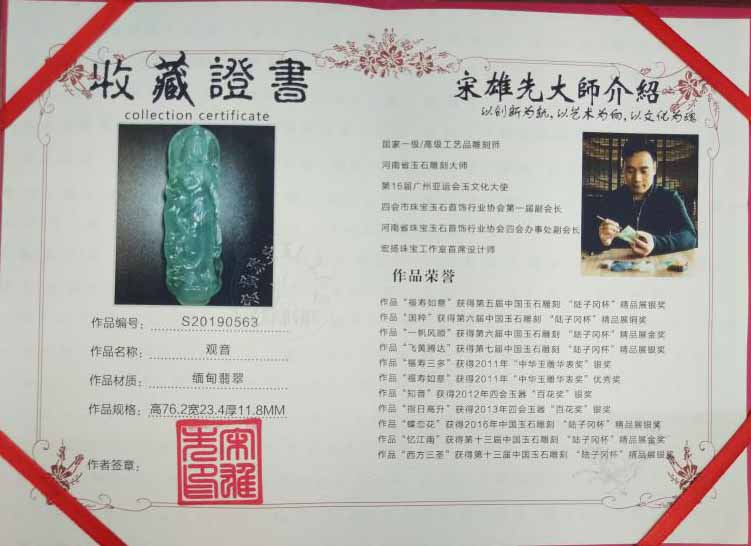 收藏證書
collection certificate
作品编号：S20190563
作品名称：观音
作品材质：缅甸翡翠
作品规格：高76.2宽23.4厚11.8MM
作者签章：
宋雄先印
宋雄先大師介紹
以创新为轨，以艺术为向，以文化为魂
国家一级/高级工艺品雕刻师
河南省玉石雕刻大师
第16届广州亚运会玉文化大使
四会市珠宝玉石首饰行业协会第一届副会长
河南省珠宝玉石首饰行业协会四会办事处副会长
宏扬珠宝工作室首席设计师
作品荣誉
作品“福寿如意”获得第五届中国玉石雕刻 “陆子冈杯”精品展银奖
作品“国粹”获得第六届中国玉石雕刻 “陆子冈杯”精品展铜奖
作品“一帆风顺”获得第六届中国玉石雕刻 “陆子冈杯”精品展金奖
作品“飞黄腾达”获得第七届中国玉石雕刻 “陆子冈杯”精品展银奖
作品“福寿三多”获得2011年“中华玉雕华表奖”银奖
作品“福寿如意”获得2011年“中华玉雕华表奖”优秀奖
作品“知音”获得2012年四会玉器“百花奖”银奖
作品“指日高升”获得2013年四会玉器“百花奖”银奖
作品“蝶恋花”获得2016年中国玉石雕刻 “陆子冈杯”精品展银奖
作品“忆江南”获得第十三届中国玉石雕刻 “陆子冈杯”精品展金奖
作品“西方三圣”获得第十三届中国玉石雕刻 “陆子冈杯”精品展银奖